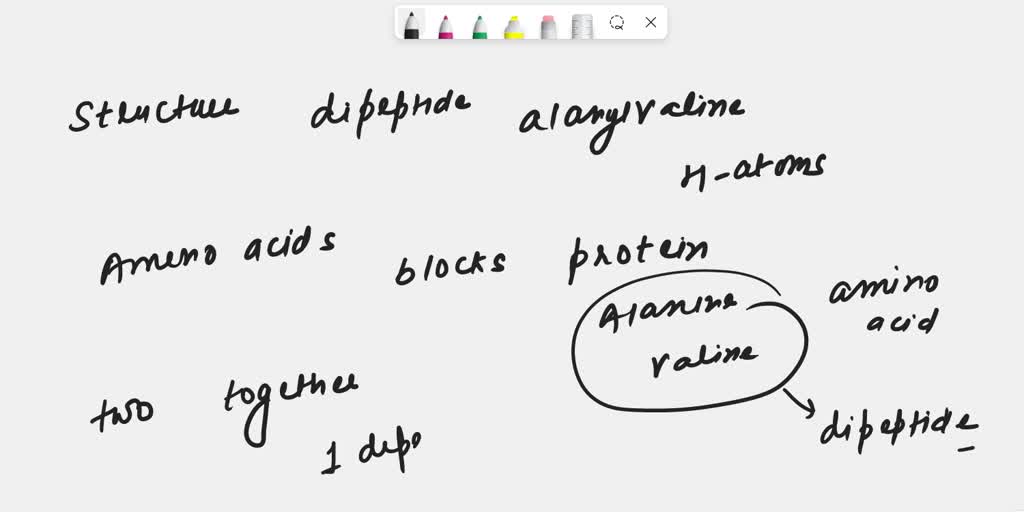 Structure dipeptide alanylvaline
H-atoms
Amino acids blocks protein
Alanine amino
acid
valine
two together
dipeptide
1 depo